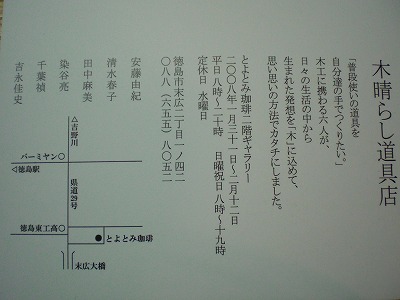 木晴らし道具店
「普段使いの道具を
自分達の手でつくりたい。」
木工に携わる六人が、
日々の生活の中から
生まれた発想を「木」に込めて、
思い思いの方法でカタチにしました。
とよとみ珈琲二階ギャラリー
二〇〇八年一月三十一日〜二月十二日
平日 八時〜二十時 日曜祝日 八時〜十九時
定休日 水曜日
徳島市末広二丁目一ノ四二
〇八八(六五五)八〇五二
安藤由紀
清水春子
田中麻美
染谷亮
千葉禎
吉永佳史
△吉野川
バーミヤン○
◁徳島駅
県道29号
徳島東工高○
とよとみ珈琲
末広大橋